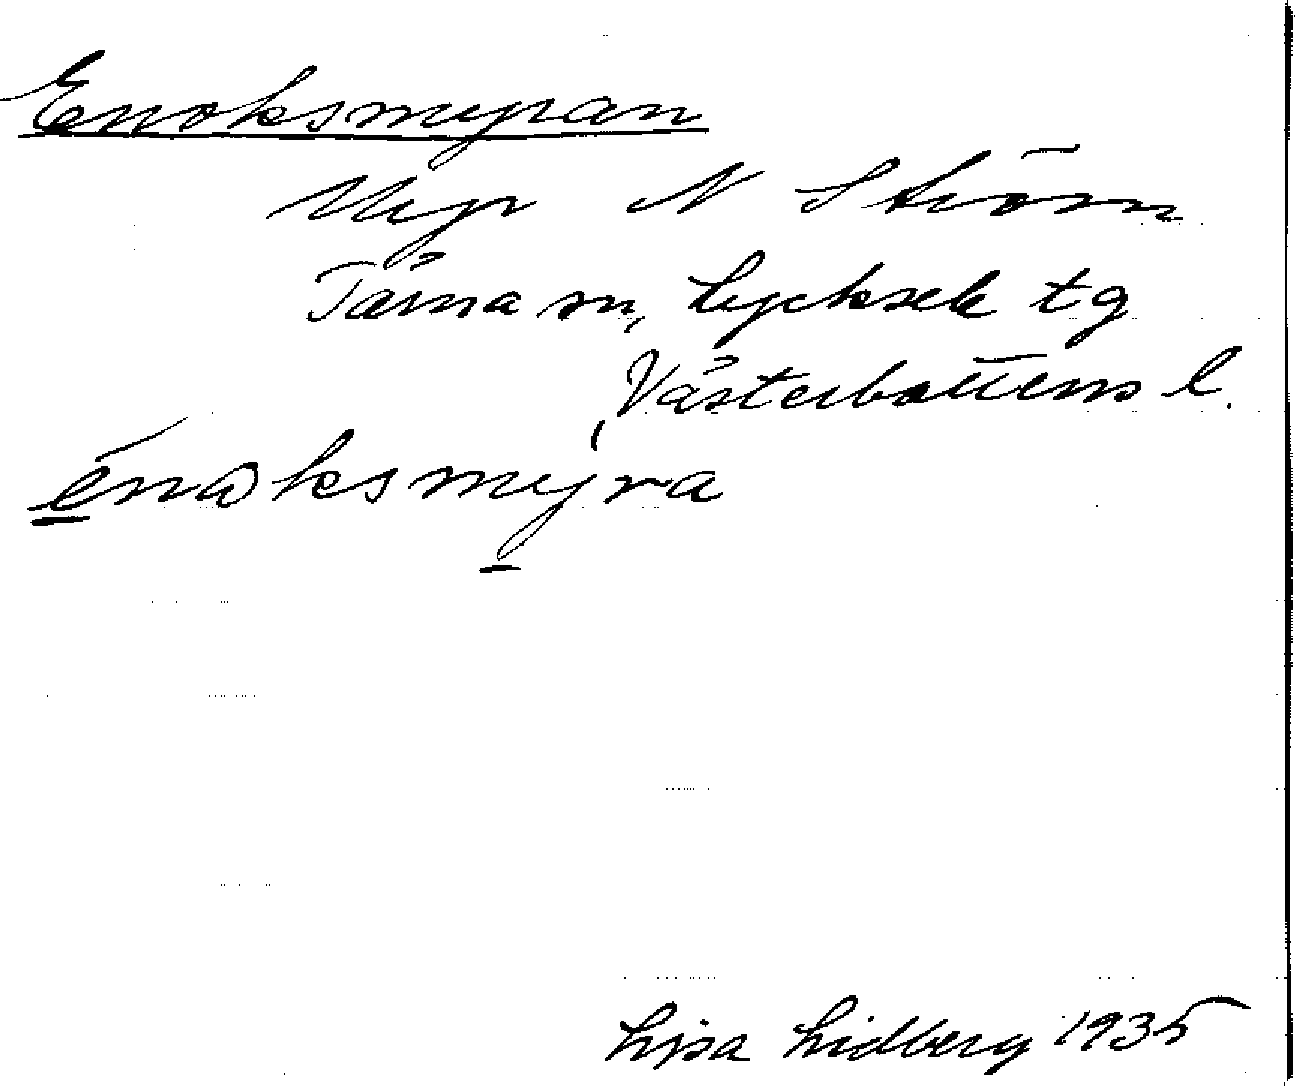 Enoksmyran
Myr N Ström
Tärna sn, Lycksele tg
Västerbottens l.
énωksmy̍ra
Lisa Lidberg 1935